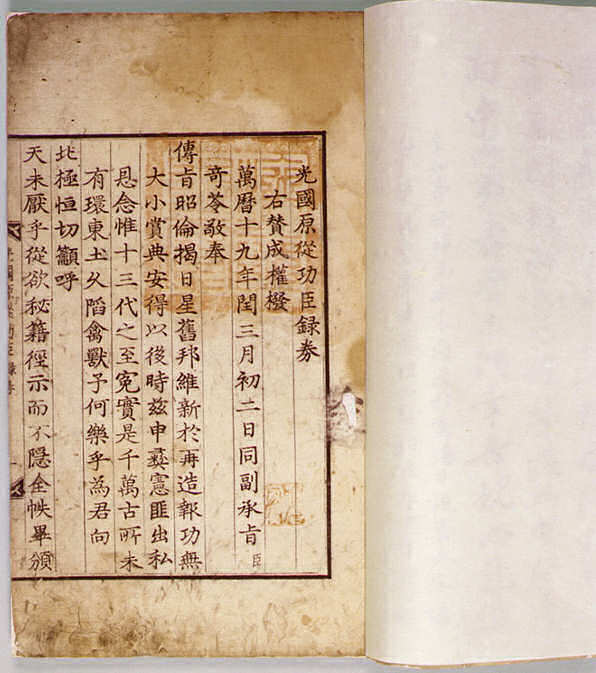 光國原從功臣錄券
右贊成權橃
萬曆十九年閏三月初二日同副承旨臣
奇苓敬奉
傳旨昭倫揭日星舊邦維新於再造報功無
大小賞典安得以後時玆申彛憲匪出私
恩念惟十三代之至寃實是千萬古所未
有環東土久䧟禽獸予何樂乎為君向
北極恒切籲呼
天未厭乎從欲秘籍徑示而不隱全帙畢頒
光國原從功臣錄券